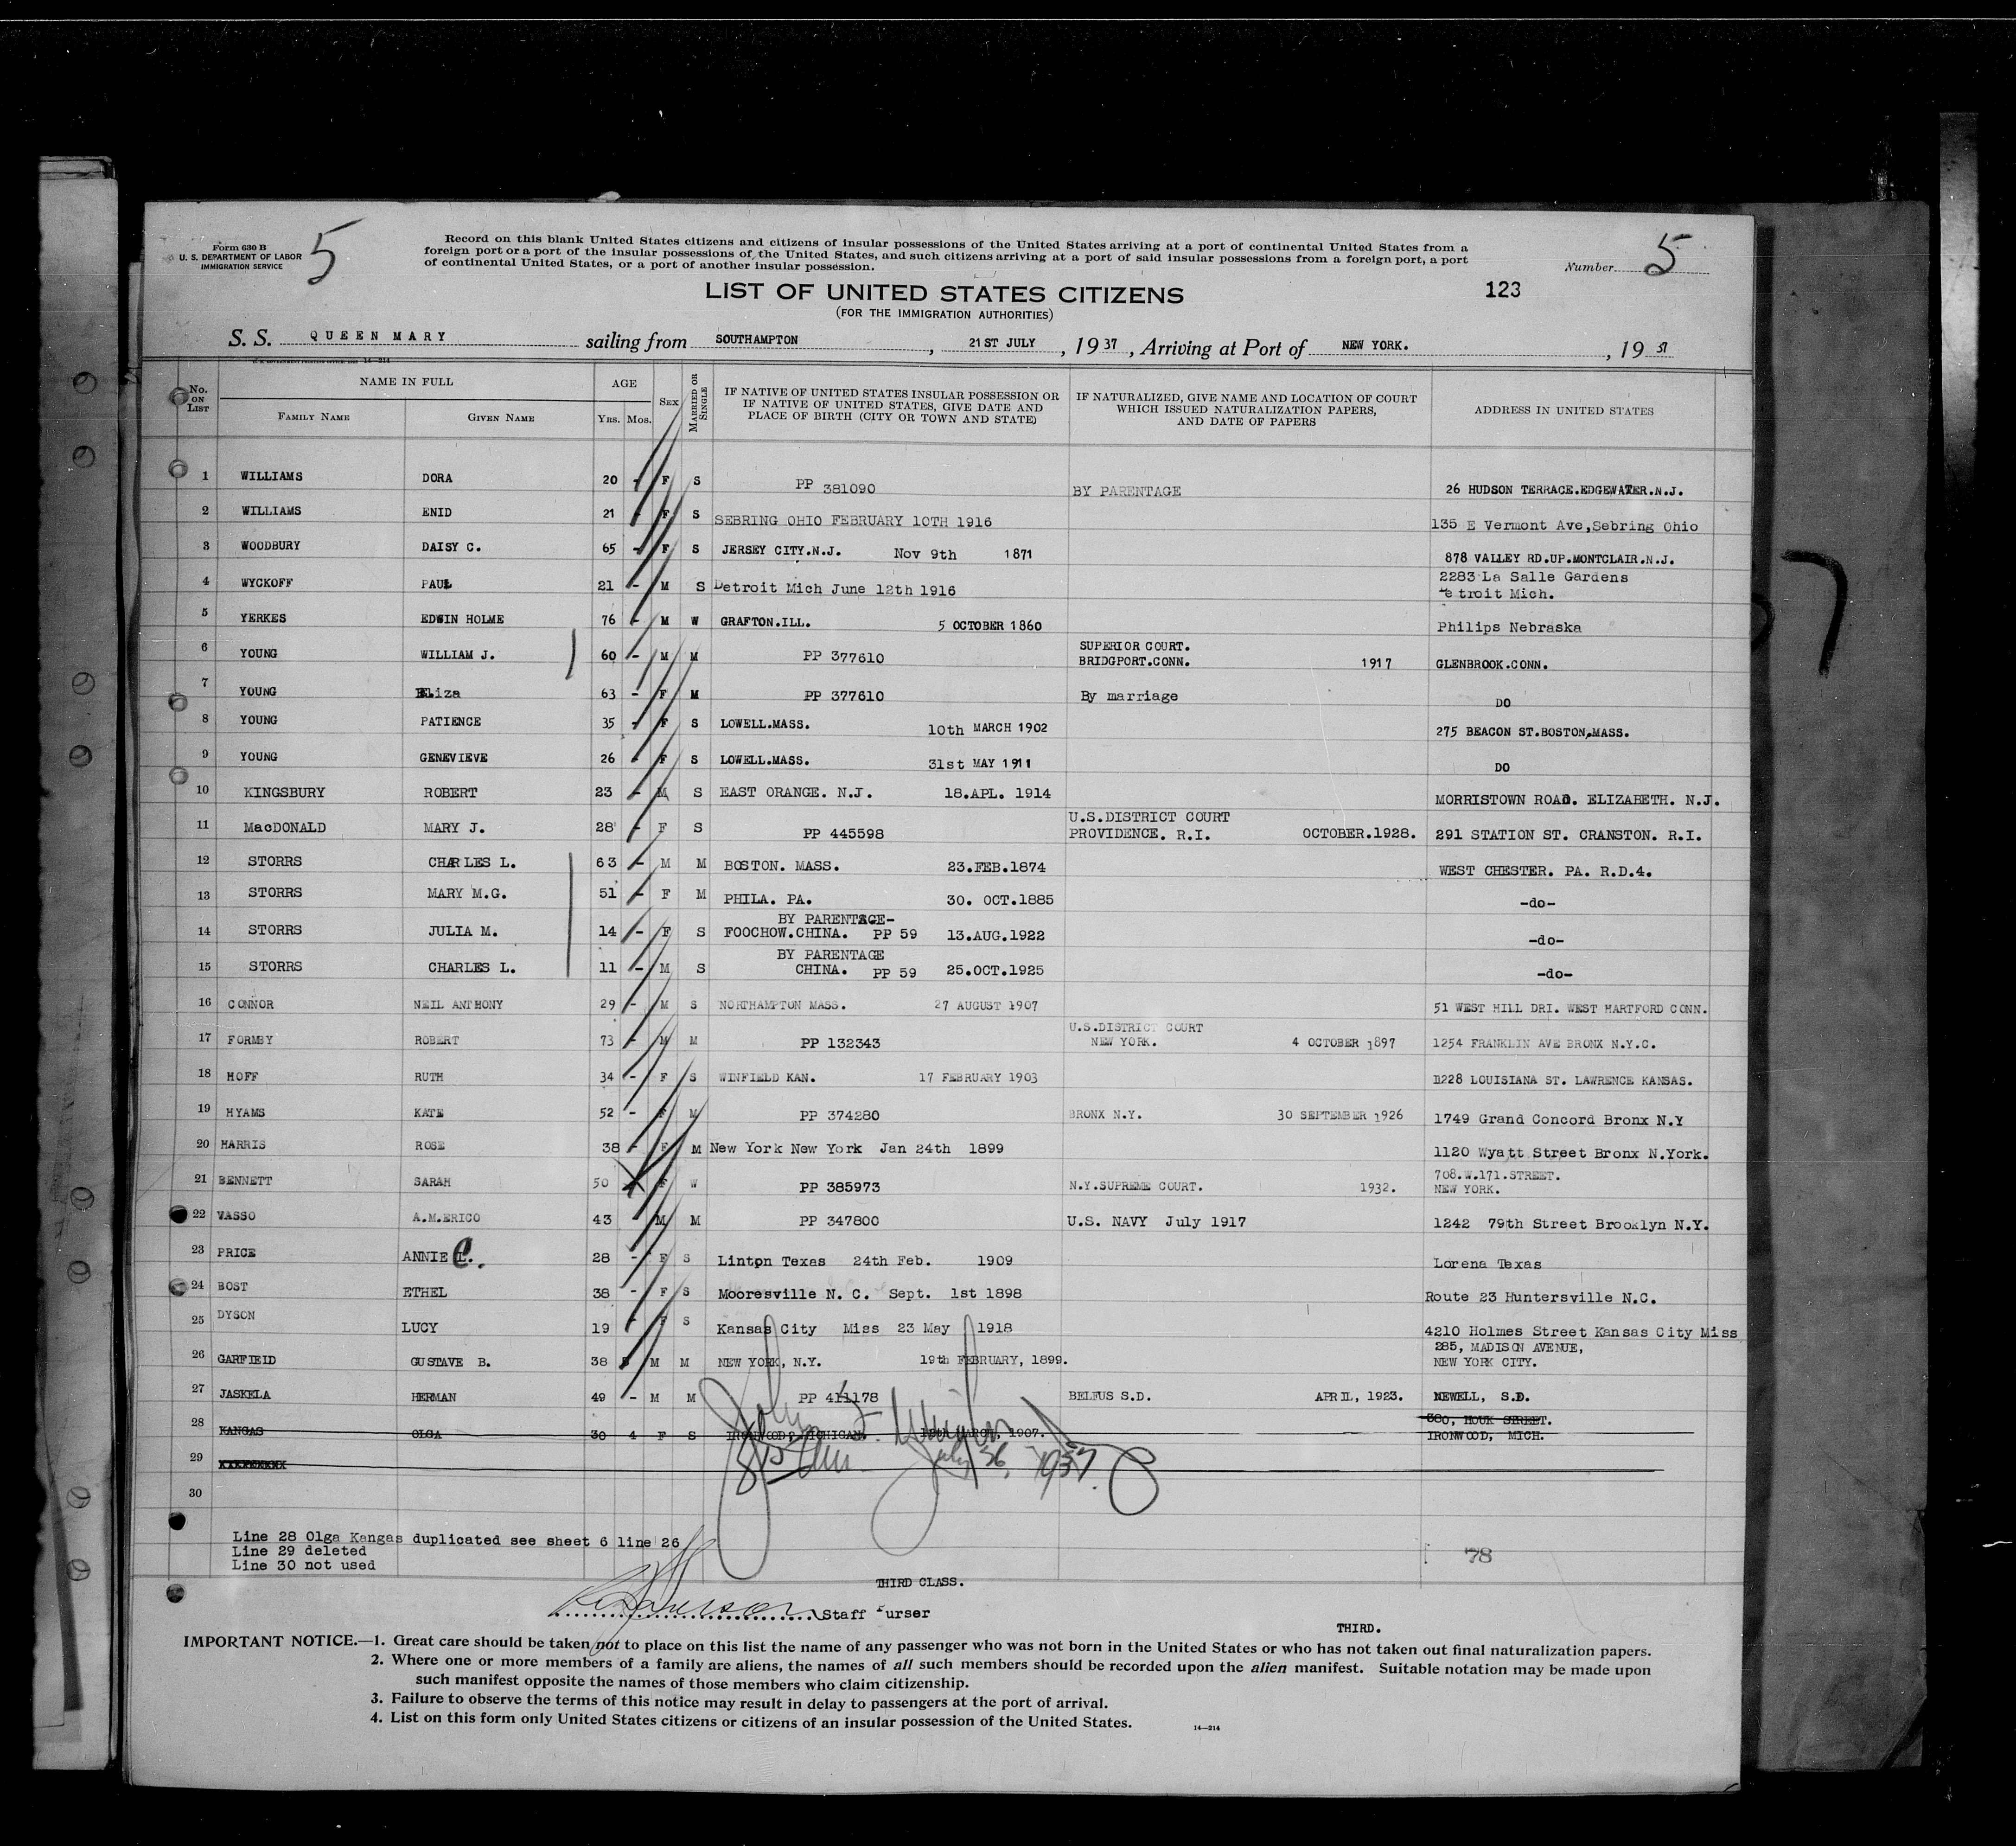 Form 630 B
U. S. DEPARTMENT OF LABOR
IMMIGRATION SERVICE
5
Record on this blank United States citizens and citizens of insular possessions of the United States arriving at a port of continental United States from a
foreign port or a port of the insular possessions of the United States, and such citizens arriving at a port of said insular possessions from a foreign port, a port
of continental United States, or a port of another insular possession.
Number 5
LIST OF UNITED STATES CITIZENS
(FOR THE IMMIGRATION AUTHORITIES)
123
S. S. QUEEN MARY sailing from SOUTHAMPTON, 21ST JULY, 1937, Arriving at Port of NEW YORK., 1937
No. ON LIST NAME IN FULL AGE SEX MARRIED OR SINGLE IF NATIVE OF UNITED STATES INSULAR POSSESSION OR IF NATIVE OF UNITED STATES, GIVE DATE AND PLACE OF BIRTH (CITY OR TOWN AND STATE) IF NATURALIZED, GIVE NAME AND LOCATION OF COURT WHICH ISSUED NATURALIZATION PAPERS, AND DATE OF PAPERS ADDRESS IN UNITED STATES
FAMILY NAME GIVEN NAME YRS. MOS.
1 WILLIAMS DORA 20 - F S PP 381090 BY PARENTAGE 26 HUDSON TERRACE.EDGEWATER.N.J.
2 WILLIAMS ENID 21 - F S SEBRING OHIO FEBRUARY 10TH 1916 135 E Vermont Ave,Sebring Ohio
3 WOODBURY DAISY C. 65 - F S JERSEY CITY.N.J. Nov 9th 1871 878 VALLEY RD.UP.MONTCLAIR.N.J.
4 WYCKOFF PAUL 21 - M S Detroit Mich June 12th 1916 2283 La Salle Gardens
Detroit Mich.
5 YERKES EDWIN HOLME 76 - M W GRAFTON.ILL. 5 OCTOBER 1860 Philips Nebraska
6 YOUNG WILLIAM J. 60 - M M PP 377610 SUPERIOR COURT.
BRIDGPORT.CONN. 1917 GLENBROOK.CONN.
7 YOUNG Eliza 63 - F M PP 377610 By marriage DO
8 YOUNG PATIENCE 35 - F S LOWELL.MASS. 10th MARCH 1902 275 BEACON ST.BOSTON,MASS.
9 YOUNG GENEVIEVE 26 - F S LOWELL.MASS. 31st MAY 1911 DO
10 KINGSBURY ROBERT 23 - M S EAST ORANGE. N.J. 18.APL. 1914 MORRISTOWN ROAD. ELIZABETH. N.J.
11 MacDONALD MARY J. 28 - F S PP 445598 U.S.DISTRICT COURT
PROVIDENCE. R.I. OCTOBER.1928. 291 STATION ST. CRANSTON. R.I.
12 STORRS CHARLES L. 63 - M M BOSTON. MASS. 23.FEB.1874 WEST CHESTER. PA. R.D.4.
13 STORRS MARY M.G. 51 - F M PHILA. PA. 30. OCT.1885 -do-
14 STORRS JULIA M. 14 - F S BY PARENTAGE-
FOOCHOW.CHINA. PP 59 13.AUG.1922 -do-
15 STORRS CHARLES L. 11 - M S BY PARENTAGE
CHINA. PP 59 25.OCT.1925 -do-
16 CONNOR NEIL ANTHONY 29 - M S NORTHAMPTON MASS. 27 AUGUST 1907 51 WEST HILL DRI. WEST HARTFORD CONN.
17 FORMBY ROBERT 73 - M M PP 132343 U.S.DISTRICT COURT
NEW YORK. 4 OCTOBER 1897 1254 FRANKLIN AVE BRONX N.Y.C.
18 HOFF RUTH 34 - F S WINFIELD KAN. 17 FEBRUARY 1903 1228 LOUISIANA ST. LAWRENCE KANSAS.
19 HYAMS KATE 52 - F M PP 374280 BRONX N.Y. 30 SEPTEMBER 1926 1749 Grand Concord Bronx N.Y
20 HARRIS ROSE 38 - F M New York New York Jan 24th 1899 1120 Wyatt Street Bronx N.York.
21 BENNETT SARAH 50 F W PP 385973 N.Y.SUPREME COURT. 1932. 708.W.171.STREET.
NEW YORK.
22 VASSO A.M.ERICO 43 - M M PP 347800 U.S. NAVY July 1917 1242 79th Street Brooklyn N.Y.
23 PRICE ANNIE C. 28 - F S Linton Texas 24th Feb. 1909 Lorena Texas
24 BOST ETHEL 38 - F S Mooresville N. C. Sept. 1st 1898 Route 23 Huntersville N.C.
25 DYSON LUCY 19 - F S Kansas City Miss 23 May 1918 4210 Holmes Street Kansas City Miss
26 GARFIEID GUSTAVE B. 38 M M NEW YORK, N.Y. 19th FEBRUARY, 1899. 285, MADISON AVENUE,
NEW YORK CITY.
27 JASKELA HERMAN 49 - M M PP 411178 BELFUS S.D. APRIL, 1923. NEWELL, S.D.
28 KANGAS OLGA 30 4 F S IRONWOOD, MICHIGAN. MARCH, 1907. 380, HOUK STREET.
IRONWOOD, MICH.
29 XXXXXXXXX
July 26, 1937.
30
Line 28 Olga Kangas duplicated see sheet 6 line 26
Line 29 deleted
Line 30 not used
78
THIRD CLASS.
Staff Purser
THIRD.
IMPORTANT NOTICE.—1. Great care should be taken not to place on this list the name of any passenger who was not born in the United States or who has not taken out final naturalization papers.
2. Where one or more members of a family are aliens, the names of all such members should be recorded upon the alien manifest. Suitable notation may be made upon
such manifest opposite the names of those members who claim citizenship.
3. Failure to observe the terms of this notice may result in delay to passengers at the port of arrival.
4. List on this form only United States citizens or citizens of an insular possession of the United States.
14—214